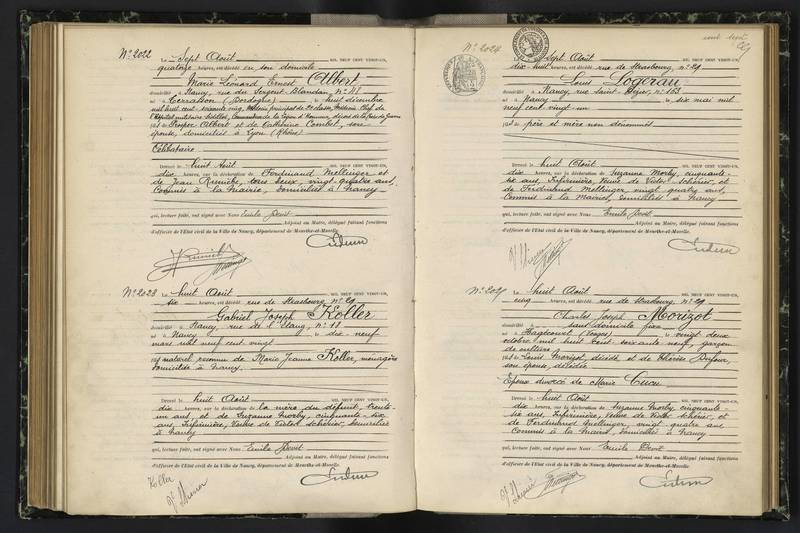 N° 2022
Le Sept Août MIL NEUF CENT VINGT-UN,
quatorze heures, est décédé en son domicile
Marie Léonard Ernest Albert
domicilié à Nancy, rue du Sergent Blandan, n° 41
né à Terrasson (Dordogne), le huit décembre
mil huit cent soixante cinq, Médecin principal de classe, Médecin Chef de
l'Hôpital militaire Sédillot, Commandeur de la Légion d'Honneur, décoré de la Croix de Guerre
fils de Prosper Albert et de Catherine Combet, son
épouse, domiciliés à Lyon (Rhône)
Célibataire
Dressé le huit Août MIL NEUF CENT VINGT-UN,
dix heures, sur la déclaration de Ferdinand Mellinger et
de Jean tous deux vingt-quatre ans,
Commis à la Mairie, domiciliés à Nancy
qui, lecture faite, ont signé avec Nous Emile Devit
Adjoint au Maire, délégué faisant fonctions
d'officier de l'Etat civil de la Ville de Nancy, département de Meurthe-et-Moselle.
N° 2023
Le huit Août MIL NEUF CENT VINGT-UN,
six heures, est décédé rue de Strasbourg, n° 29
Gabriel Joseph Koller
domicilié à Nancy, rue de l'Etang, n° 18
né à Nancy le dix neuf
mars mil neuf cent vingt
fils naturel reconnu de Marie Jeanne Koller, ménagère
domiciliée à Nancy.
Dressé le huit Août MIL NEUF CENT VINGT-UN,
dix heures, sur la déclaration de la mère du défunt, trente
un ans, et de Suzanne Morby, cinquante-six
ans, Infirmière, Veuve de Victor Schérier, domiciliées
à Nancy
qui, lecture faite, ont signé avec Nous Emile Devit
Adjoint au Maire, délégué faisant fonctions
d'officier de l'Etat civil de la Ville de Nancy, département de Meurthe-et-Moselle.
Koller
N° 2024
Le Sept Août MIL NEUF CENT VINGT-UN,
dix huit heures, est décédé rue de Strasbourg, n° 29
Louis Logerau
domicilié à Nancy, rue Saint Dizier, n° 163
né à Nancy le six mai mil
neuf cent vingt un
fils de père et mère non dénommés
Dressé le huit Août MIL NEUF CENT VINGT-UN,
dix heures, sur la déclaration de Suzanne Morby, cinquante-
six ans, Infirmière, Veuve de Victor Schérier, et
de Ferdinand Mellinger, vingt quatre ans,
Commis à la Mairie, domiciliés à Nancy
qui, lecture faite, ont signé avec Nous Emile Devit
Adjoint au Maire, délégué faisant fonctions
d'officier de l'Etat civil de la Ville de Nancy, département de Meurthe-et-Moselle.
N° 2025
Le huit Août MIL NEUF CENT VINGT-UN,
cinq heures, est décédé rue de Strasbourg, n° 29
Charles Joseph Morizot
domicilié à sans domicile fixe
né à Hagécourt (Vosges) le vingt deux
octobre mil huit cent soixante neuf, garçon
de culture
fils de Louis Morizot, décédé et de Thérèse Dufour,
son épouse, décédée
Epoux divorcé de Marie
Dressé le huit Août MIL NEUF CENT VINGT-UN,
dix heures, sur la déclaration de Suzanne Morby, cinquante
six ans, Infirmière, Veuve de Victor Schérier, et
de Ferdinand Mellinger, vingt quatre ans
Commis à la Mairie, domiciliés à Nancy
qui, lecture faite, ont signé avec Nous Emile Devit
Adjoint au Maire, délégué faisant fonctions
d'officier de l'Etat civil de la Ville de Nancy, département de Meurthe-et-Moselle.